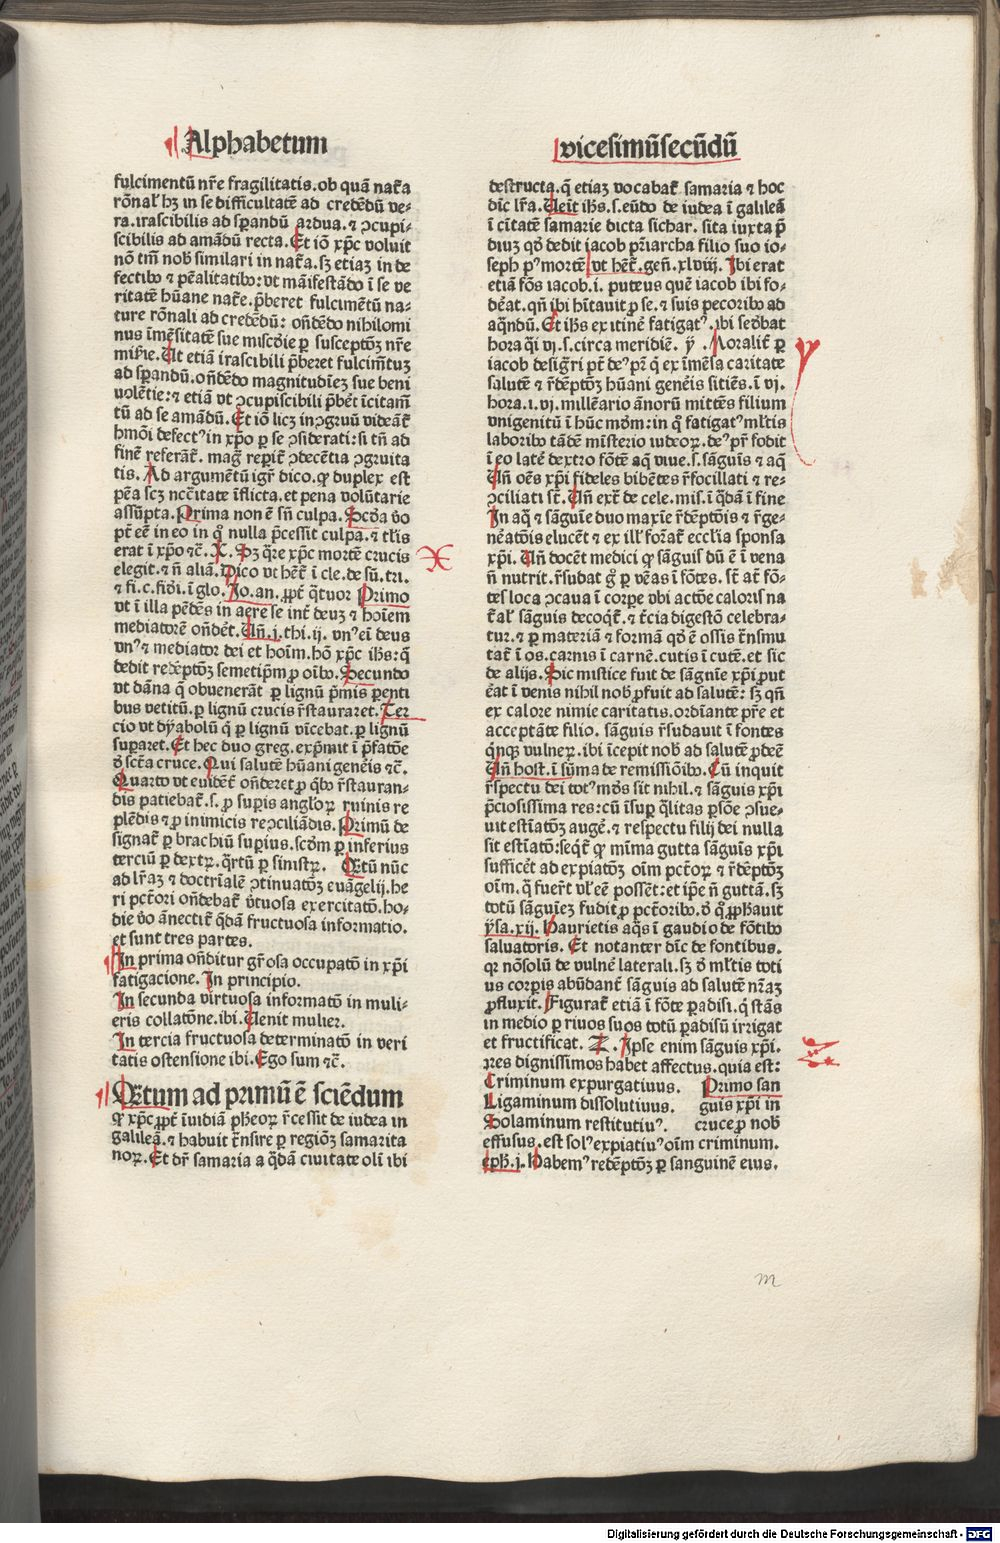 Alphabetum
fulcimentū nr̄e fragilitatis. ob quā nat̄a
rōnal̄ hꝫ in se difficultatē ad credēdū ve-
ra. irascibilis ad sꝑandū ardua. ⁊ ꝯcupi-
scibilis ad amādū recta. Et iō xp̄c voluit
nō tm̄ nob̄ similari in nat̄a. sꝫ etiaꝫ in de
fectibꝰ ⁊ pēalitatibꝰ: vt māifestādo ī se ve
ritatē hūane nat̄e. p̄beret fulcimētū na-
ture rōnali ad credēdū: on̄dēdo nihilomi
nus īmēsitatē sue misc̄die ꝑ susceptōꝫ nr̄e
miẜie. Ut etiā irascibili p̄beret fulcim̄tuꝫ
ad sꝑandū. on̄dēdo magnitudīeꝫ sue beni
volētie: ⁊ etiā vt ꝯcupiscibili p̄bēt īcitam̄
tū ad se amādū. Et iō licꝫ inꝯgruū videāt̄
hmōi defectꝰ in xp̄o ꝑ se ꝯsiderati: si tn̄ ad
finē referāt̄. maḡ reꝑit̄ ꝯdecētia ꝯgruita
tis. Ad argumētū igr̄ dico. ꝙ duplex est
pēa scꝫ ncc̄itate īflicta. et pena volūtarie
assūpta. Prima non ē sn̄ culpa. Scd̄a v̄o
pt̄ eē in eo in qͦ nulla p̄cessit culpa. ⁊ tl̄is
erat ī xp̄o ⁊c̄. X. Sꝫ q̄re xp̄c mortē crucis
elegit. ⁊ n̄ aliā. Dico vt hēt̄ ī cle. de sū. tri.
⁊ fi. c. fidi. ī glo. Io. an. ꝓpt̄ q̄tuor Primo
vt ī illa pēdēs in aere se int̄ deuꝫ ⁊ hoīem
mediatorē on̄dēt. Un̄. j. thi. ij. vnꝰ ei deus
vnꝰ ⁊ mediator dei et hoīm. hō xp̄c ihs̄: q̄
dedit redēptōꝫ semetip̄m ꝓ oībꝰ. Secundo
vt dāna q̄ obuenerāt ꝑ lignū p̄mis ꝑenti
bus vetitū. ꝑ lignū crucis r̄stauraret. Ter
cio vt dyabolū q̄ ꝑ lignū vicebat. ꝑ lignū
suꝑaret. Et hec duo greg. exp̄mit ī p̄fatōe
ð sct̄a cruce. Qui salutē hūani genēis ⁊c̄.
Quarto vt evidēt̄ on̄deret ꝓ qͥbꝰ r̄stauran-
dis patiebat̄. s. ꝓ suꝑis angloꝝ ruinis re
plēdis ⁊ ꝓ inimicis reꝯciliādis. Primū de
signat̄ ꝑ brachiū suꝑius. scd̄m ꝑ inferius
terciū ꝑ dextꝝ. q̄rtū ꝑ sinistꝝ. Qtū nūc
ad lr̄aꝫ ⁊ doctrīalē ꝯtinuatōꝫ euāgelij. he
ri pct̄ori on̄debat̄ v̄tuosa exercitatō. ho-
die v̄o ānectit̄ q̄dā fructuosa informatio.
et sunt tres partes.
In prima on̄ditur gr̄osa occupatō in xp̄i
fatigacione. In principio.
In secunda virtuosa informatō in muli-
eris collatōne. ibi. Uenit mulier.
In tercia fructuosa determinatō in veri
tatis ostensione ibi. Ego sum ⁊c̄.
Qtum ad primū ē sciēdum
ꝙ xp̄c ꝓpt̄ īuidiā pheoꝝ r̄cessit de iudea in
galileā. ⁊ habuit t̄nsire ꝑ regiōꝫ samarita
noꝝ. Et dr̄ samaria a q̄dā ciuitate oli ibi
vicesimūsecūdū
destructa. q̄ etiaꝫ vocabat̄ samaria ⁊ hoc
dīc lr̄a. Ueit ihs̄. s. eūdo de iudea ī galileā
ī citatē samarie dicta sichar. sita iuxta p̄
diuꝫ qð dedit iacob pr̄iarcha filio suo io-
seph pꝰ mortē vt hēt̄. gen̄. xlviij. Ibi erat
etiā fōs iacob. i. puteus quē iacob ibi fo-
dēat. qn̄ ibi hītauit ꝓ se. ⁊ suis pecoribꝰ ad
aq̄ndū. Et ihs̄ ex itinē fatigatꝰ. ibi sedebat
hora q̄i vj. s. circa meridiē. y. Moralit̄ ꝑ
iacob desiḡri pt̄ deꝰ pr̄ q̄ ex īmēsa caritate
salutē ⁊ r̄dēptōꝫ hūani genēis sitiēs. ī vj.
hora. i. vj. millēario ānorū mittēs filium
vnigenitū ī hūc mōm: in q̄ fatigatꝰ ml̄tis
laboribꝰ tādē mīsterio iudeoꝝ. deꝰ pr̄ fodit
ī eo latē dextro fōtē aq̄ viue. s. sāguīs ⁊ aq̄
Un̄ oēs xp̄i fideles bibētes r̄focillati ⁊ re-
ꝯciliati st̄. Un̄ ext̄ de cele. mis. ī q̄dā ī fine
In aq̄ ⁊ sāguīe duo maxīe r̄dēptōis ⁊ r̄ge-
nēatōis elucēt ⁊ ex ill̄ foꝛat̄ eccl̄ia sponsa
xp̄i. Un̄ docēt medici ꝙ sāguiſ dū ē ī vena
n̄ nutrit. r̄sudat gͦ ꝑ vēas ī fōtes. st̄ at̄ fō-
tes loca ꝯcaua ī corꝑe vbi actōe caloris na
t̄al̄ sāguis decoqt̄. ⁊ t̄cia digestō celebra-
tur. ⁊ ꝑ materiā ⁊ formā qð ē ossis t̄nsmu
tat̄ ī os. carnis ī carnē. cutis ī cutē. et sic
de alijs. Sic mistice fuit de sāgnīe xp̄i ꝓut
ēat ī venis nihil nob̄ ꝓfuit ad salutē: sꝫ qn̄
ex calore nimie caritatis. ordīante pr̄e et
acceptāte filio. sāguis r̄sudauit ī fontes
q̄nqꝫ vulneꝝ. ibi īcepit nob̄ ad salutē ꝓdeē
Un̄ host. ī sūma de remissiōibꝰ. Cū inquit
r̄spectu dei totꝰ mōs sit nihil. ⁊ sāguis xp̄i
p̄ciosissima res: cū īsuꝑ q̄litas ꝑsōe ꝯsue-
uit estīatōꝫ augē. ⁊ respectu filij dei nulla
sit estīatō: seqt̄ ꝙ mīma gutta sāguis xp̄i
sufficēt ad expiatōꝫ oīm pct̄oꝝ ⁊ r̄dēptōꝫ
oīm. q̄ fuer̄t vl̄ eē possēt: et ip̄e n̄ guttā. sꝫ
totū sāguīeꝫ fudit ꝓ pct̄oribꝰ. ð qͦ ꝓphauit
ysa. xij. Haurietis aq̄s ī gaudio de fōtibꝰ
saluatoris. Et notanter dīc de fontibus.
qꝛ nō solū de vulnē laterali. sꝫ ð ml̄tis toti
us corꝑis abūdant̄ sāguis ad salutē nr̄aꝫ
ꝓfluxit. Figurat̄ etiā ī fōte ꝑadisi. q̄ stās
in medio ꝑ riuos suos totū ꝑadisū irrigat
et fructificat. Z. Ipse enim sāguis xp̄i.
ꝫres dignissimos habet affectus. quia est:
Criminum expurgatiuus. Primo san
Ligaminum dissolutiuus. guis xp̄i in
Solaminum restitutiuꝰ. cruce ꝓ nob̄
effusus. est solꝰ expiatiuꝰ oīm criminum.
eph. j. Habemꝰ redēptōꝫ ꝑ sanguinē eius.
X
y
Z
m
Digitalisierung gefördert durch die Deutsche Forschungsgemeinschaft - DFG